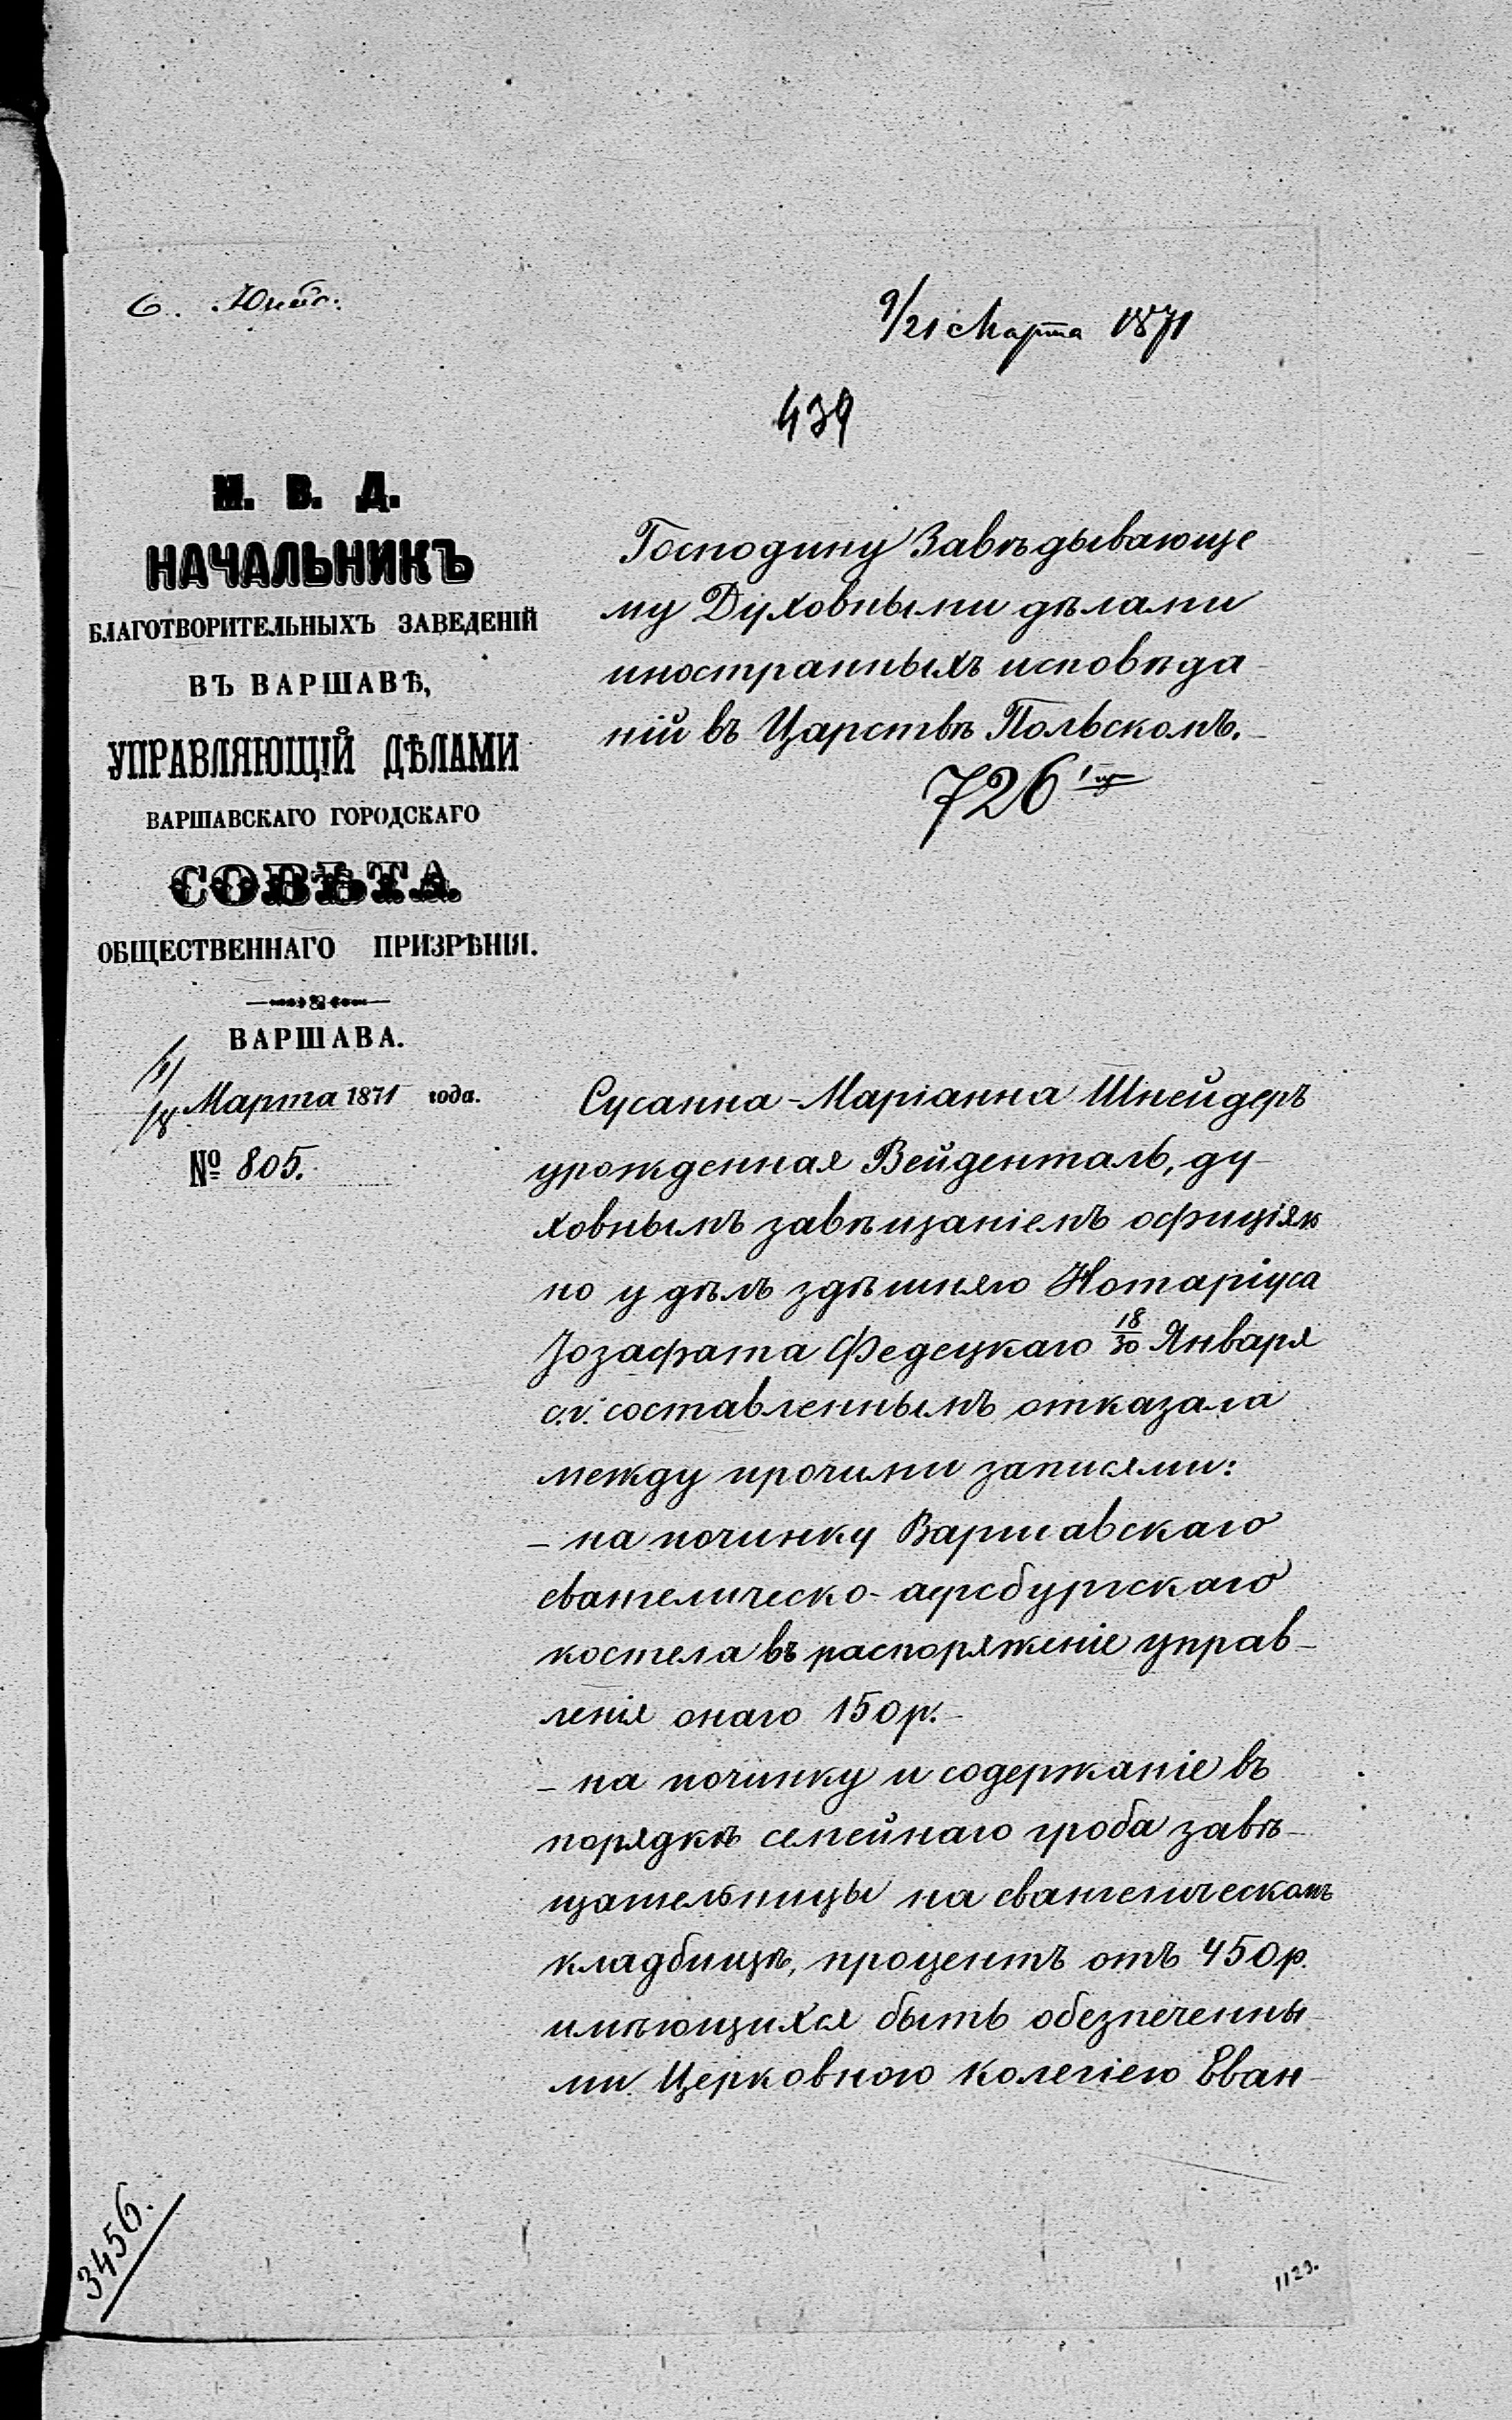 9/21 Марта 1871
439
М. В. Д.
НАЧАЛЬНИКЪ
БЛАГОТВОРИТЕЛЬНЫХЪ ЗАВЕДЕНІЙ
ВЪ ВАРШАВѢ,
УПРАВЛЯЮЩІЙ ДѢЛАМИ
ВАРШАВСКАГО ГОРОДСКАГО
СОВѢТА
ОБЩЕСТВЕННАГО ПРИЗРѢНІЯ.
ВАРШАВА.
Марта 1871 года.
№ 805.
Господину Завѣдывающе
му Духовными дѣлами
иностранныхъ исповѣда
ній въ Царствѣ Польскомъ.
726
Сусанна-Маріанна Шнейдеръ
урожденная Вейденталь, ду-
ховнымъ завѣщаніемъ офиціяль
но у дѣлъ здѣшняго Нотаріуса
Іозафата Федецкаго 18/30 Января
с.г. составленнымъ отказала
между прочими записями:
- на починку Варшавскаго
евангелическо-аугсбургскаго
костела въ распоряженіе управ-
ленія онаго 150 р.-
- на починку и содержаніе въ
порядкѣ семейнаго гроба завѣ-
щательницы на евангелическомъ
кладбищѣ, процентъ отъ 450 р.
имѣющихся быть обезпеченны
ми Церковною колегіею Еван-
3456.
1123.